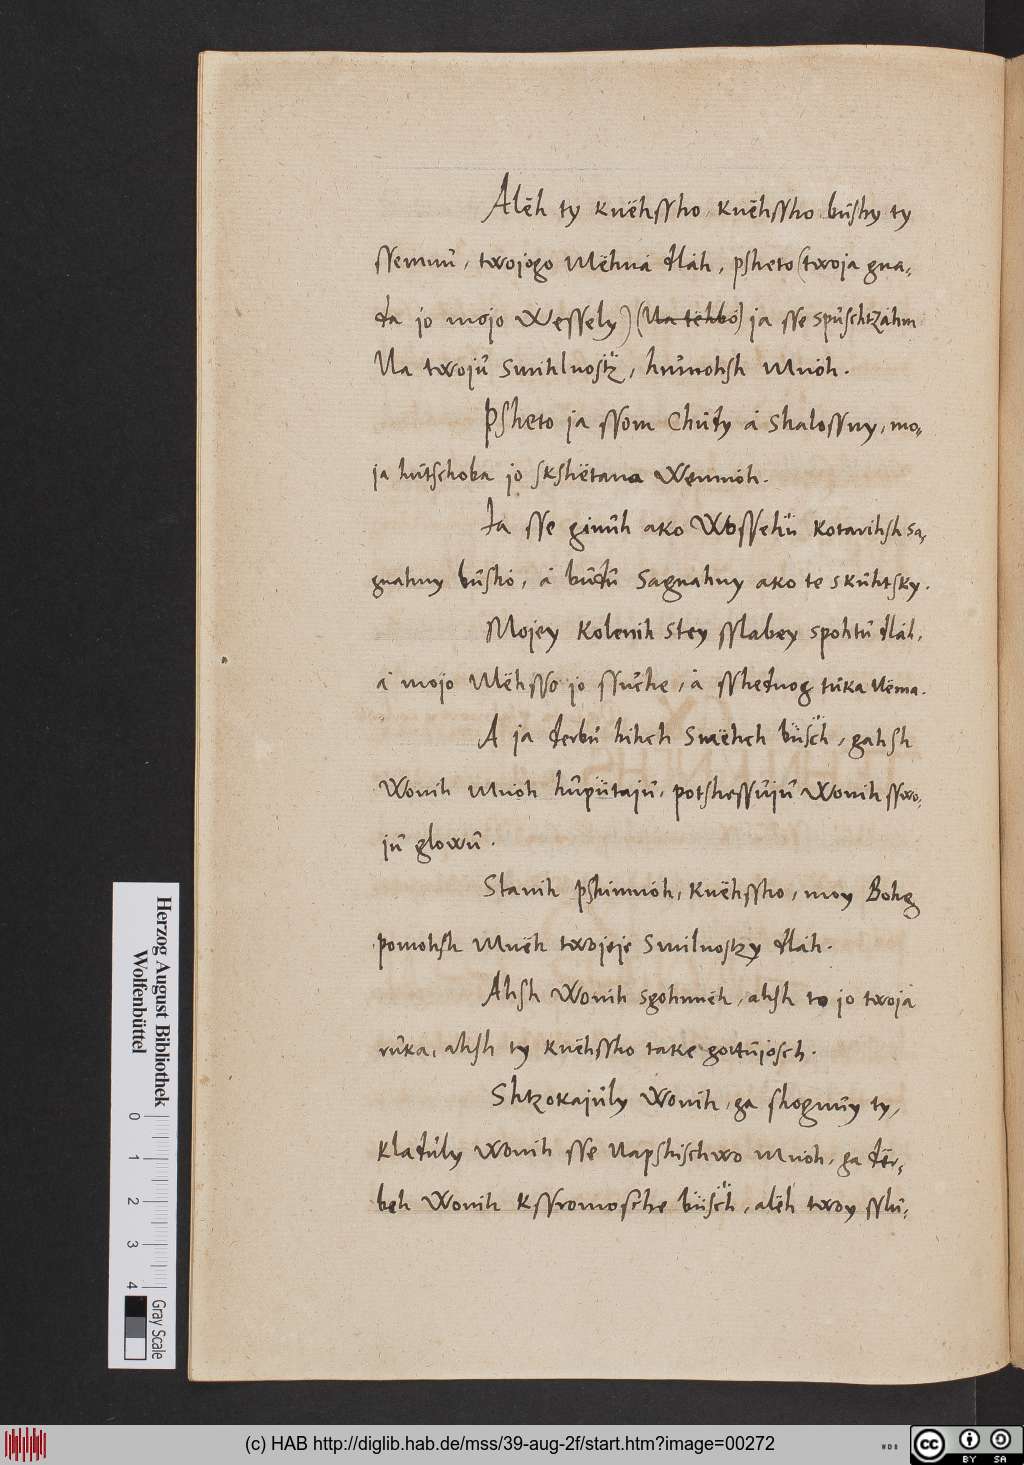 Alëh ty knëhssho, knëhssho büshy ty
ssemnű, twojogo Mëhná dláh, psheto (twoja gna-
da jo mojo Wessely) (Na tëhbó) ja sse spűschtzáhm
Na twojű Smihlnostz, hűmohsh Mnóh.
Psheto ja ssom Chüdy á Shalossny, mo-
ja hütschoba jo skshëtana Wemnóh.
Ja sse ginűh ako Wossehn Kotarihsh sa,
gnahny bűshó, á bűdű Sagnahny ako te skűhtsky.
Mojey Kolenih stey sslabey spohtű dláh,
á mojo Mëhsso jo ssűche, á sshednog tűka Nëma.
A ja derbű hihch Smëhch büsch, gahsh
Wonih Mnóh hűpütajű, potshessűjű Wonih sswo-
jű glowű.
Stanih pshimnóh, Knëhssho, moy Bohg
pomohsh Mnëh twojeje Smilnostzy dláh.
Ahsh Wonih sgohnnëh, ahsh to jo twoja
rűka, ahsh ty knëhssho take goitűjósch.
Shtzokajűly Wonih, ga shognűy ty,
kladűly Wonih sse Napshischwo Mnóh, ga dër-
beh Wonih Kssromosche büsch, alëh twoy sslű-
Herzog August Bibliothek
Wolfenbüttel
0 1 2 3 4
Gray Scale
(c) HAB http://diglib.hab.de/mss/39-aug-2f/start.htm?image=00272
WDB
cc BY SA